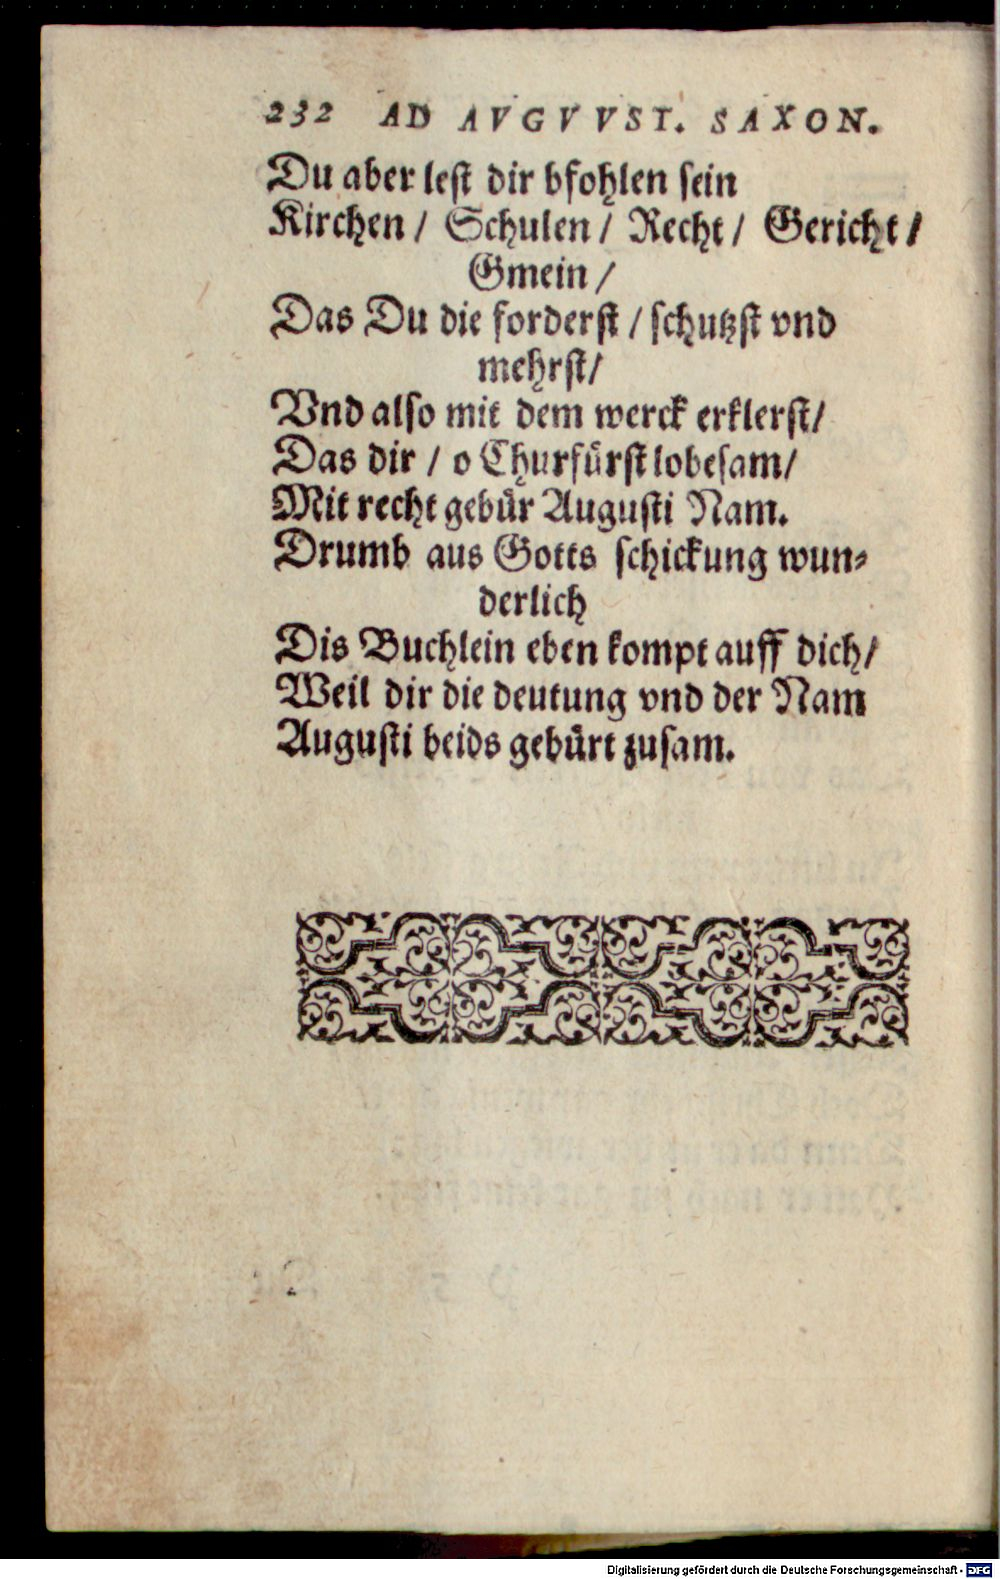 232 AD AVGVVST. SAXON.
Du aber lest dir bfohlen sein
Kirchen / Schulen / Recht / Gericht /
Gmein /
Das Du die forderst / schutzst vnd
mehrst /
Vnd also mit dem werck erklerst /
Das dir / o Churfürst lobesam /
Mit recht gebür Augusti Nam.
Drumb aus Gotts schickung wun-
derlich
Dis Buchlein eben kompt auff dich /
Weil dir die deutung vnd der Nam
Augusti beids gebürt zusam.
Digitalisierung gefördert durch die Deutsche Forschungsgemeinschaft - DFG